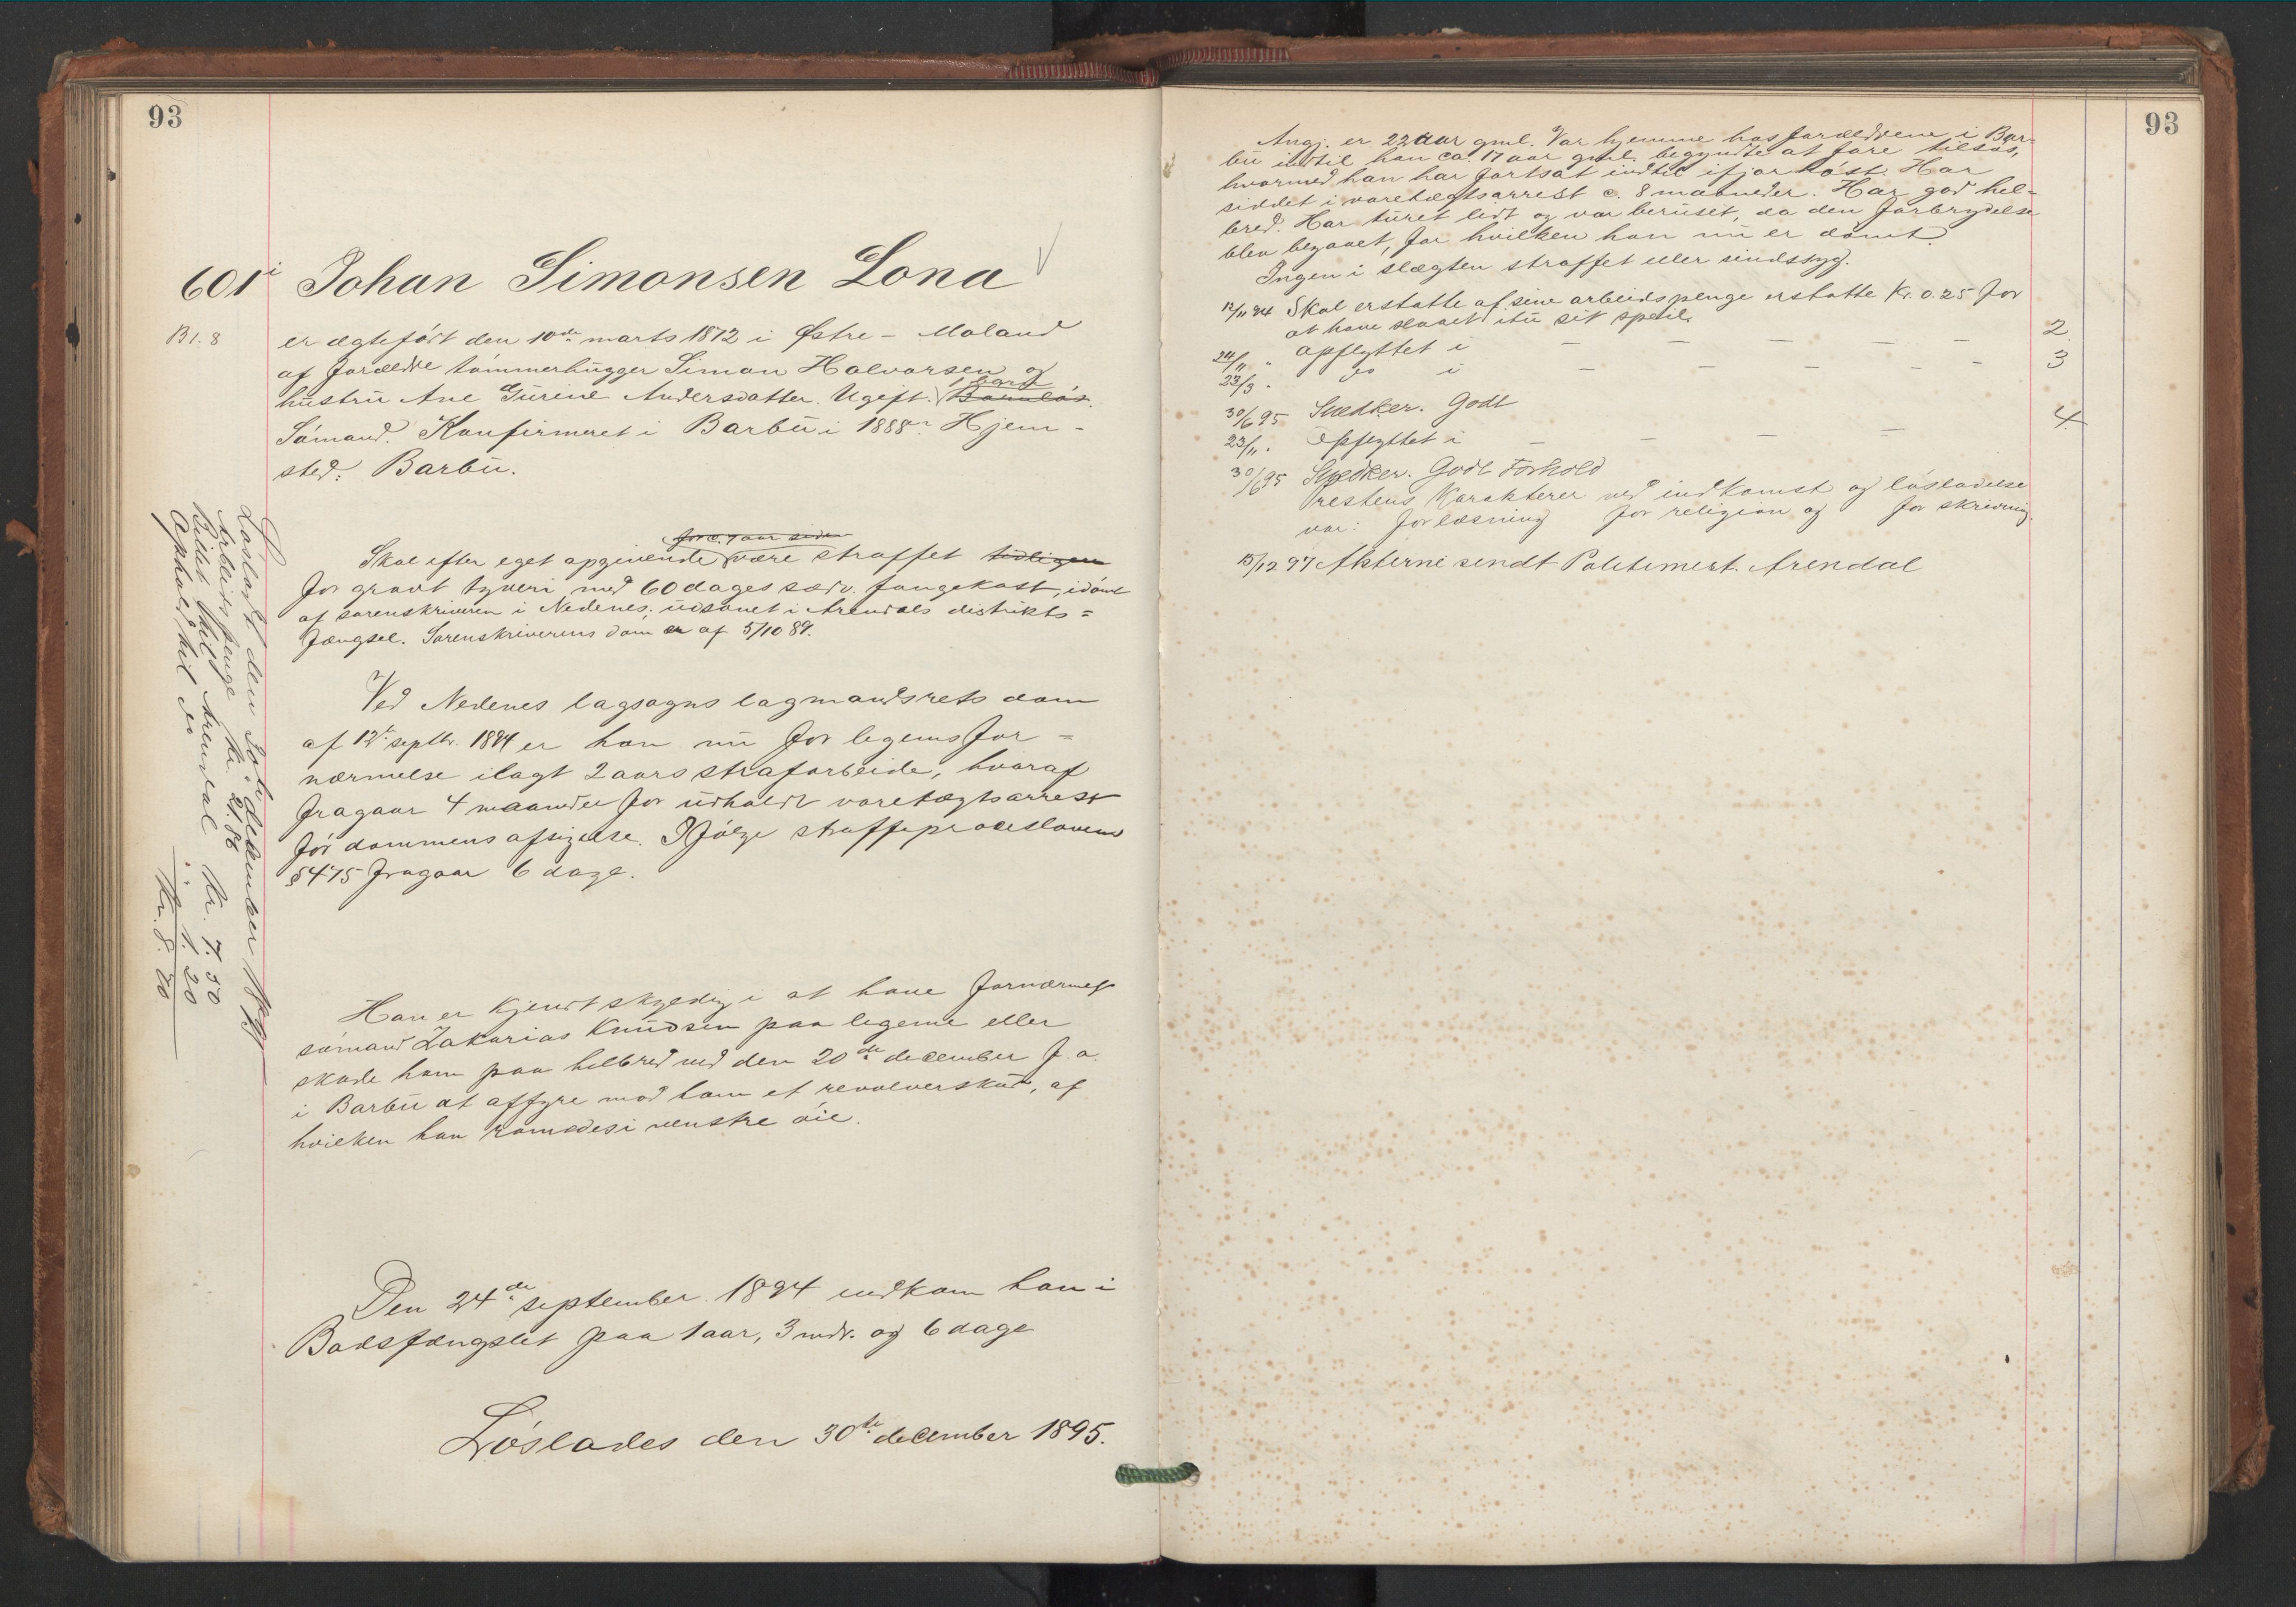 93
601 Johan Simonsen Lona
B1. 8
er ægtefødt den 10de marts 1872 i Østre - Moland
af forældre tömmerhugger Simon Halvorsen og
hustru Ane Gurine Andersdatter. Ugift. 1 barn Barnløs.
Sömand. Konfirmeret i Barbu i 1888. Hjem-
sted: Barbu.
for c. 7 aar siden
Skal efter eget opgivende være straffet tidligere
for grovt tyveri med 60 dages sædv. fangekost, idömt
af sorenskriveren i Nedenes; udsonet i Arendals distrikts=
fængsel. Sorenskriverens dom er af 5/10 89.
Ved Nedenes lagsogns lagmandsrets dom
af 12te septbr. 1894 er han nu for legemsfor=
nærmelse ilagt 2 aars strafarbeide, hvoraf
fragaar 4 maaneder for udholdt varetægtsarrest
för dommens afsigelse. Ifölge straffeproceslovens
§ 475 fragaar 6 dage.
Han er kjendt skyldig i at have fornærmet
sömand Zakarias Knudsen paa legeme eller
skade ham paa helbred ved den 20de december f. a.
i Barbu at affyre mod ham et revolverskud, af
hvilken han ramtes i venstre öie.
Den 24de september 1894 indkom han i
Bodsfængslet paa 1 aar, 3 mdr. og 6 dage
Lösladt den 30te december 1895
Arbeidspenge kr. 21.88
Billet til Arendal kr. 7. 50
Ophold til do " 1. 20
Kr. 8. 70
Löslades den 30te december 1895.
93
Angj. er 22 aar gml. Var hjemme hos forældrene i Bar-
bu indtil han ca. 17 aar gml. begyndte at fare tilsös,
hvormed han har fortsat indtil ifjor höst. Har
siddet i varetægtsarrest c. 8 maaneder. Har god hel-
bred. Har turet lidt og var beruset, da den forbrydelse
blev begaaet, for hvilken han nu er dömt.
Ingen i slægten straffet eller sindssyg.
12/11 94 Skal erstatte af sine arbeidspenge erstatte Kr. 0.25 for
at have slaaet itu sit speil.
24/11 " Opflyttet i — — — — — 2
23/3 " do i — — — — — 3
30/6 95 Snedker. Godt
23/11 " Opflyttet i — — — — 4
30/6 95 Snedker. Godt Forhold
restens Karakterer ved indkomst og lösladelse
var: for læsning for religion og for skrivning.
15/12 97 Akterne sendt Politimest. Arendal